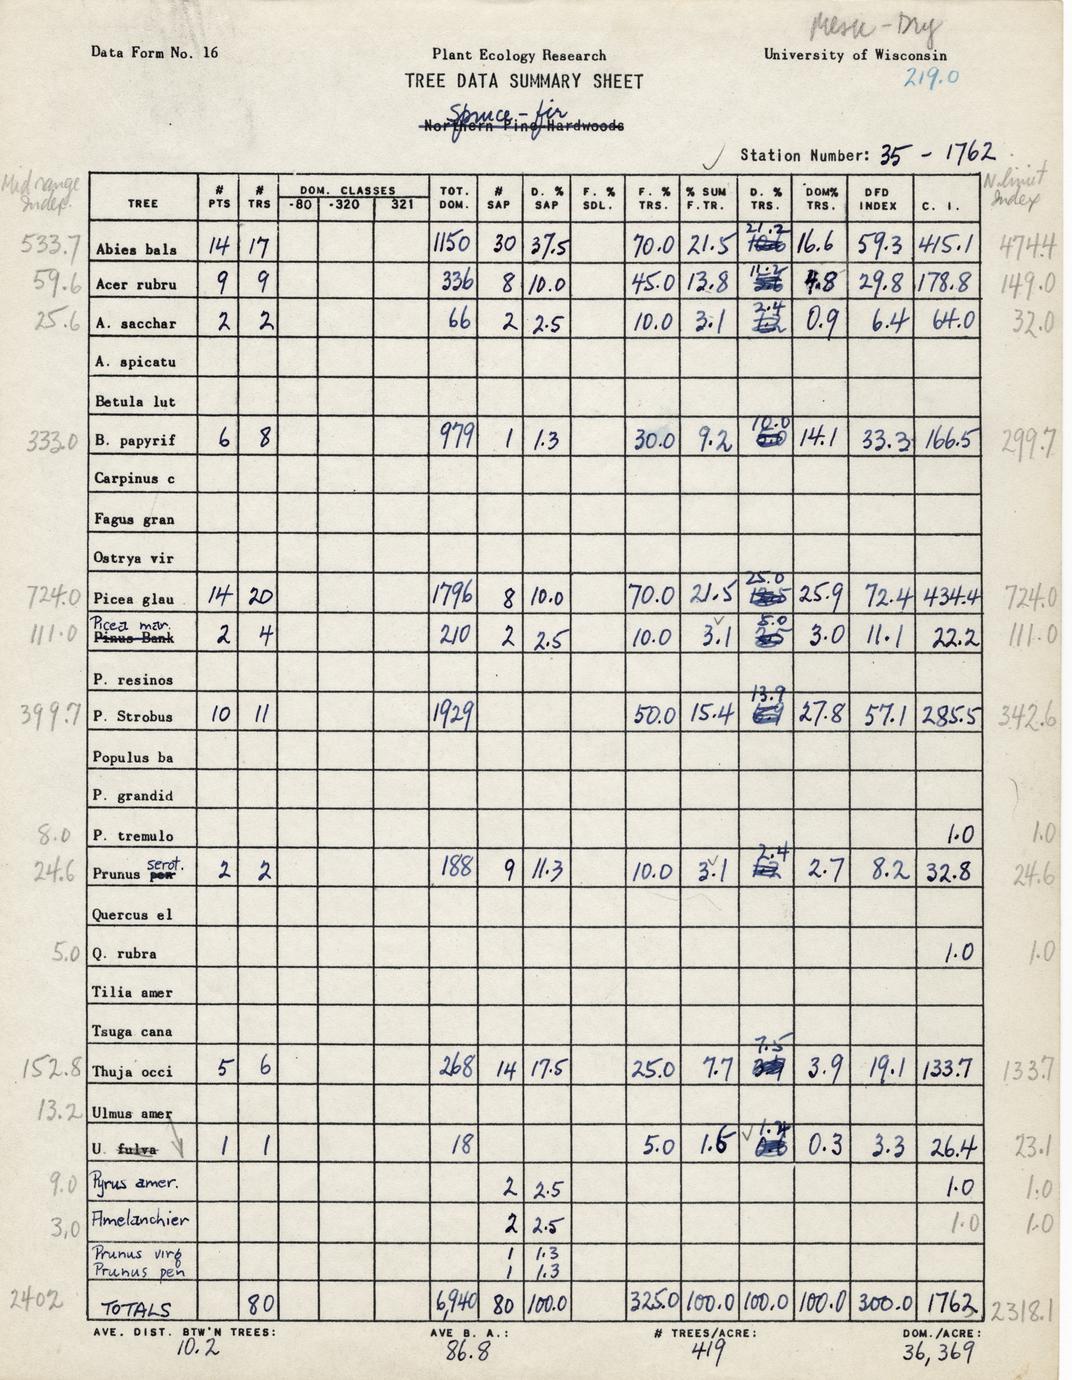 Mesic - Dry
Data Form No. 16 Plant Ecology Research University of Wisconsin
TREE DATA SUMMARY SHEET 219.0
Spruce - fir
Northern Pine Hardwoods
Station Number: 35 - 1762
Mid range Index. TREE # PTS # TRS DOM. CLASSES -80 -320 321 TOT. DOM. # SAP D. % SAP F. % SDL. F. % TRS. % SUM F.TR. D. % TRS. DOM% TRS. DFD INDEX C. I. N. limit Index
533.7 Abies bals 14 17 1150 30 37.5 70.0 21.5 21.2 16.6 59.3 415.1 474.4
59.6 Acer rubru 9 9 336 8 10.0 45.0 13.8 11.2 4.8 29.8 178.8 149.0
25.6 A. sacchar 2 2 66 2 2.5 10.0 3.1 2.4 0.9 6.4 64.0 32.0
A. spicatu
Betula lut
333.0 B. papyrif 6 8 979 1 1.3 30.0 9.2 10.0 14.1 33.3 166.5 299.7
Carpinus c
Fagus gran
Ostrya vir
724.0 Picea glau 14 20 1796 8 10.0 70.0 21.5 25.0 25.9 72.4 434.4 724.0
Picea mar.
111.0 Pinus Bank 2 4 210 2 2.5 10.0 3.1 5.0 3.0 11.1 22.2 111.0
P. resinos
399.7 P. Strobus 10 11 1929 50.0 15.4 13.9 27.8 57.1 285.5 342.6
Populus ba
P. grandid
8.0 P. tremulo 1.0 1.0
24.6 Prunus serot. 2 2 188 9 11.3 10.0 3.1 2.4 2.7 8.2 32.8 24.6
Quercus el
5.0 Q. rubra 1.0 1.0
Tilia amer
Tsuga cana
152.8 Thuja occi 5 6 268 14 17.5 25.0 7.7 7.5 3.9 19.1 133.7 133.7
13.2 Ulmus amer
U. fulva 1 1 18 5.0 1.6 1.4 0.3 3.3 26.4 23.1
9.0 Pyrus amer. 2 2.5 1.0 1.0
3.0 Amelanchier 2 2.5 1.0 1.0
Prunus virg 1 1.3
Prunus pen 1 1.3
2402 TOTALS 80 6,940 80 100.0 325.0 100.0 100.0 100.0 300.0 1762 2318.1
AVE. DIST. BTW'N TREES: AVE B. A.: # TREES/ACRE: DOM./ACRE:
10.2 86.8 419 36,369